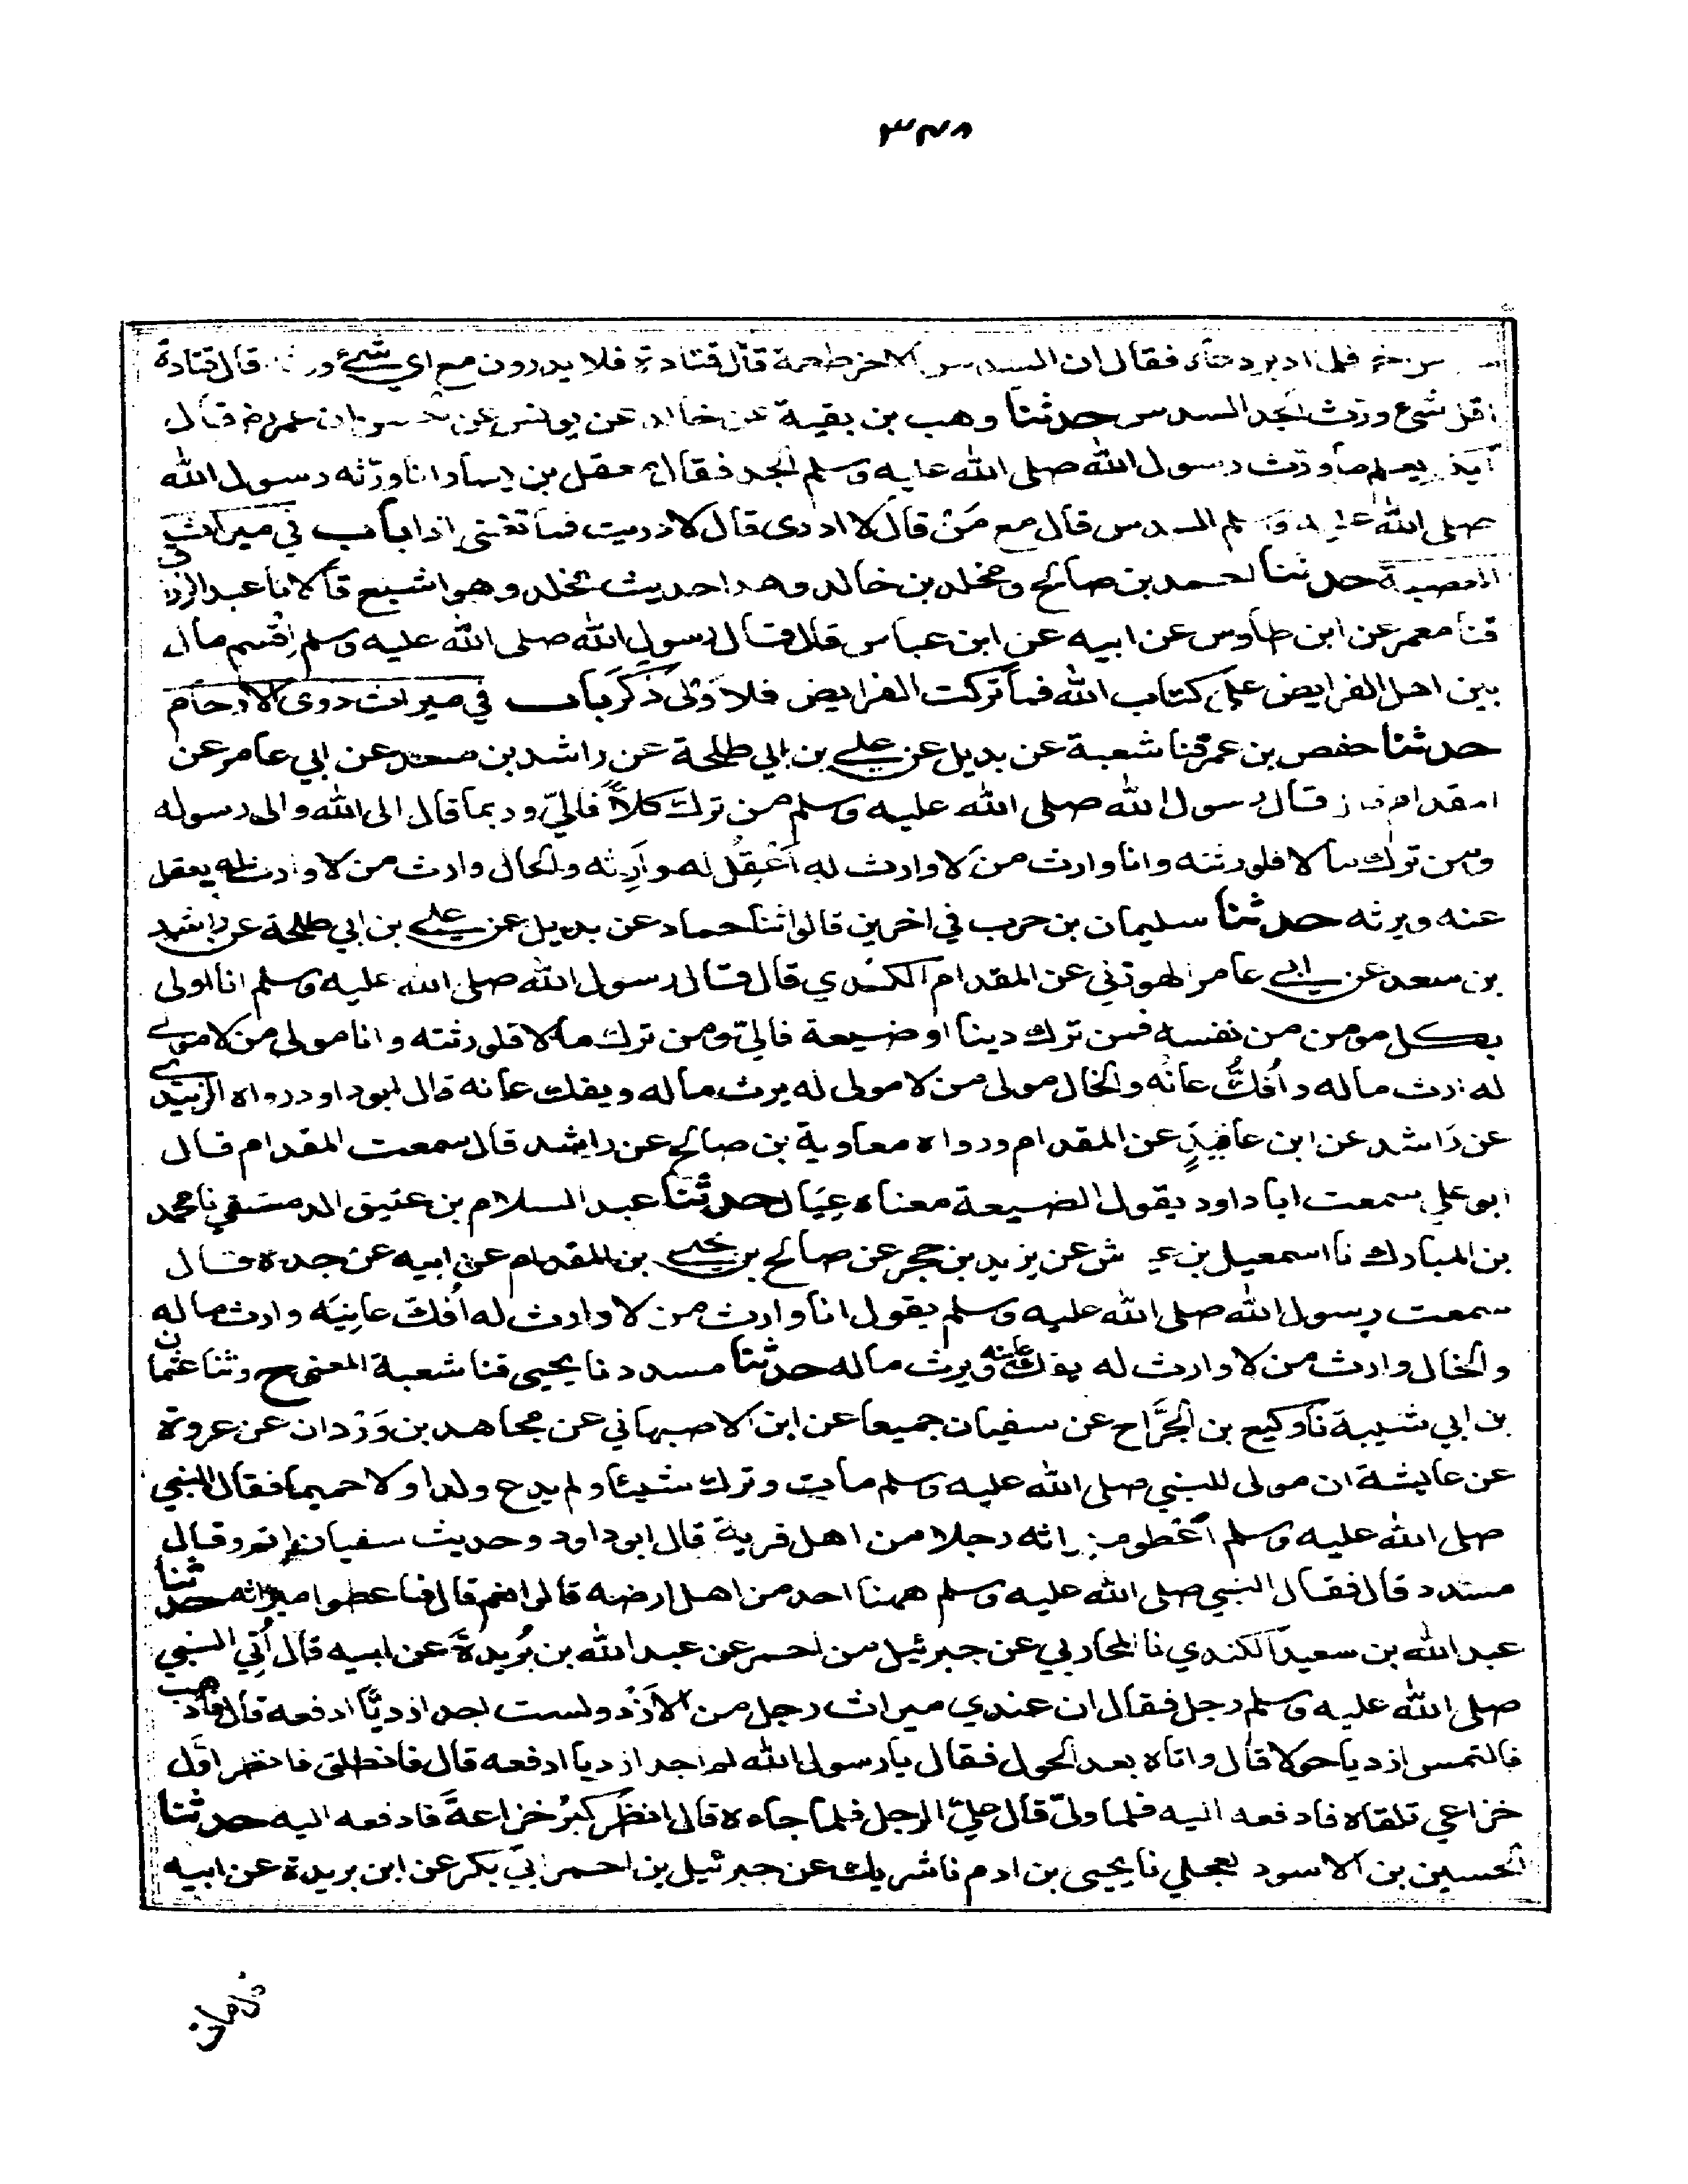 ٣٤٨
اخر فلما ادبر دعاه فقال ان السدس الاخر طعمة قال قتادة فلا يدرون مع اي شئ ورثه قال قتادة
اقل شئ ورث الجد السدس حدثنا وهب بن بقية عن خالد عن يونس عن ان عمر رضه قال
ايكم يعلم ما ورث رسول الله صلى الله عليه وسلم الجد فقال معقل بن يسار انا ورّثه رسول الله
صلى الله عليه وسلم السدس قال مع مَنْ قال لا ادرى قال لا دريت فما تغنى اذا باب في ميراث
العصبة حدثنا احمد بن صالح ومخلد بن خالد وهذا حديث مخلد وهو اشبع قالا نا عبد الرزاق
قنا معمر عن ابن طاوس عن ابيه عن ابن عباس قال قال رسول الله صلى الله عليه وسلم اِقْسم مال
بين اهل الفرايض على كتاب الله فما تركت الفرايض فلاَوْلى ذَكَر باب في ميراث ذوى الارحام
حدثنا حفص بن عمر قنا شعبة عن بديل عن علي بن ابي طلحة عن راشد بن سعد عن ابي عامر عن
المقدام قال قال رسول الله صلى الله عليه وسلم من ترك كلاًّ فاليّ وربما قال الى الله والى رسوله
ومن ترك مالا فلورثته وانا وارث من لا وارث له اَعْقِلُ له وَاَرِثه والخال وارث من لا وارث له يعقل
عنه ويرثه حدثنا سليمان بن حرب في اخرين قالوا ثنا حماد عن بديل عن علي بن ابي طلحة عن راشد
بن سعد عن ابي عامر الهوزني عن المقدام الكندي قال قال رسول الله صلى الله عليه وسلم انا اولى
بكل مومن من نفسه فمن ترك دينا او ضيعة فاليّ ومن ترك مالا فلورثته وانا مولى من لا مولى
له ارث ماله وافُكّ عانَه والخال مولى من لا مولى له يرث ماله ويفك عانه قال ابو داود رواه الزبيدي
عن راشد عن ابن عايذٍ عن المقدام ورواه معاوية بن صالح عن راشد قال سمعت المقدام قال
ابو علي سمعت ابا داود يقول الضيعة معناه عِيَال حدثنا عبد السلام بن عتيق الدمشقي نا محمد
بن المبارك نا اسمعيل بن عياش عن يزيد بن حجر عن صالح بن يحيى بن المقدام عن ابيه عن جده قال
سمعت رسول الله صلى الله عليه وسلم يقول انا وارث من لا وارث له اَفُكّ عانِيَه وارث ماله
والخال وارث من لا وارث له يفك عانيه ويرث ماله حدثنا مسدد نا يحيى قنا شعبة المعنى ح وثنا عثمان
بن ابي شيبة نا وكيع بن الجَرَّاح عن سفيان جميعا عن ابن الاصبهاني عن مجاهد بن وَرْدان عن عروة
عن عايشة ان مولى للنبي صلى الله عليه وسلم مات وترك شيئا ولم يدع ولدا ولا حميما فقال النبي
صلى الله عليه وسلم اَعْطو ميراثه رجلا من اهل قرية قال ابو داود وحديث سفيان اتم وقال
مسدد قال فقال النبي صلى الله عليه وسلم ههنا احد من اهل ارضه قالوا نعم قال فاعطوا ميراثه حدثنا
عبد الله بن سعيد الكندي نا المحاربي عن جبرئيل بن احمر عن عبد الله بن بُريدةَ عن ابيه قال اُتِي النبي
صلى الله عليه وسلم رجل فقال ان عندي ميراث رجل من الاَزْد ولست اجد ازديًّا ادفعه قال فاذهب
فالتمس ازديا حولا قال واتاه بعد الحول فقال يا رسول الله لم اجد ازديا ادفعه قال فانطلق فانظر اوَّل
خزاعي تلقاه فادفعه اليه فلما ولّى قال عليّ الرجل فلما جاءه قال انظر كبُر خزاعةَ فادفعه اليه حدثنا
الحسين بن الاسود العجلي نا يحيى بن ادم نا شريك عن جبرئيل بن احمر ابي بكر عن ابن بريدة عن ابيه
قال مات